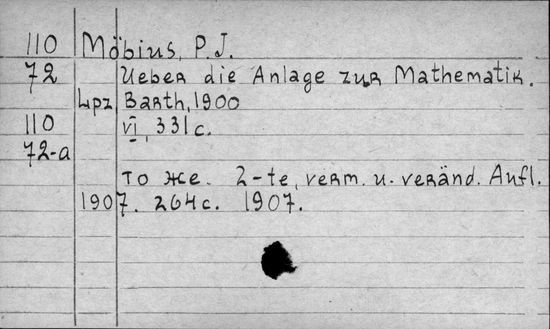 110 Möbius, P.J.
72 Ueber die Anlage zur Mathematik.
Lpz Barth, 1900
110 VI, 331 c.
72-a
То же. 2-te, verm. u. veränd. Aufl.
1907. 264 c. 1907.